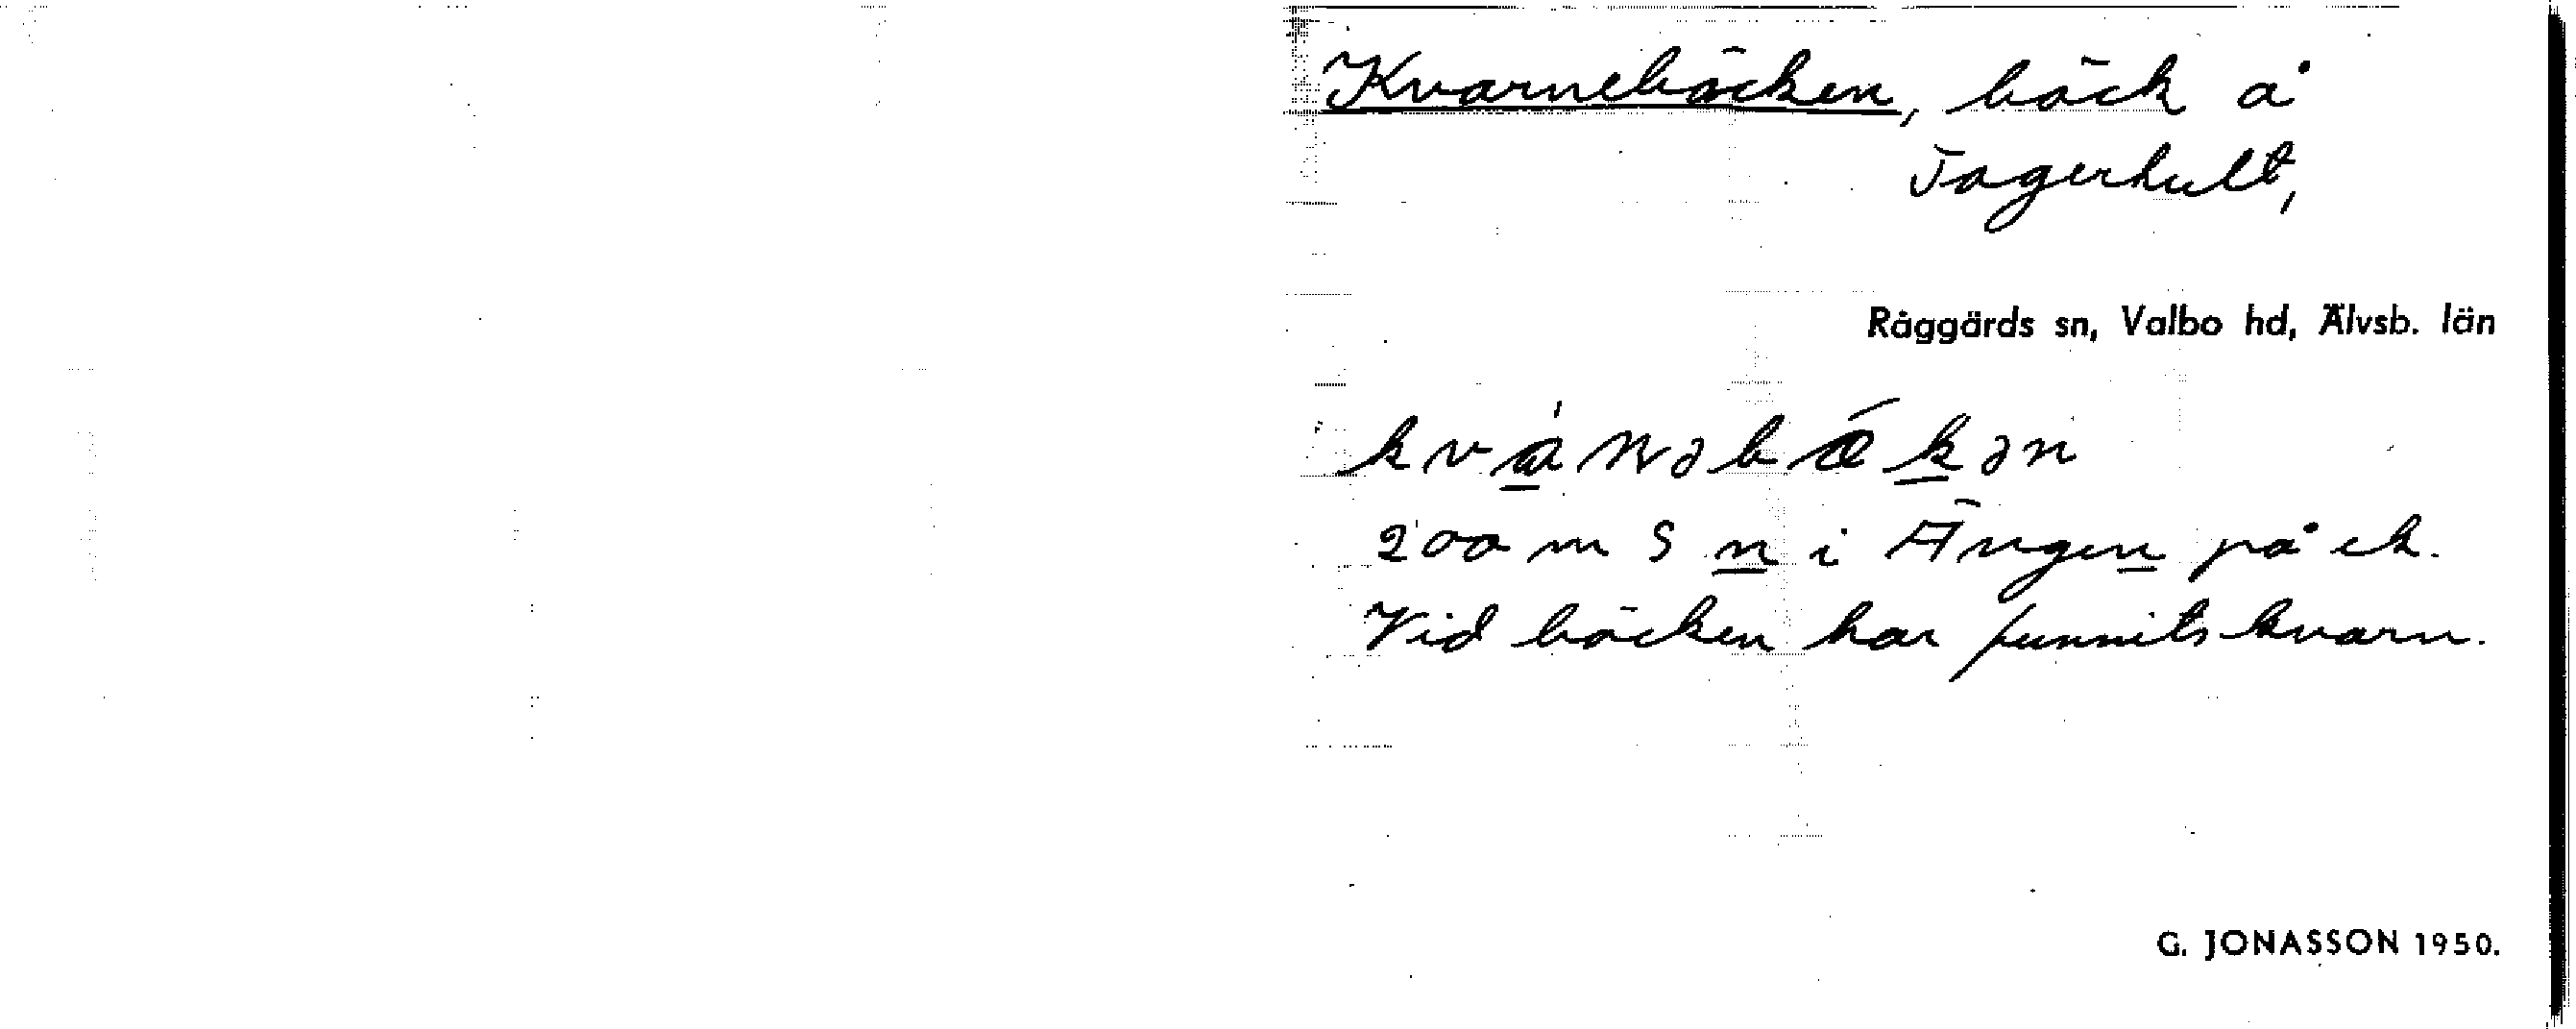 Kvarnebäcken, bäck å
Tagerhult,
Råggärds sn, Valbo hd, Älvsb. län
200 m S n i Ängen på ek.
Vid bäcken har funnits kvarn.
G. JONASSON 1950.